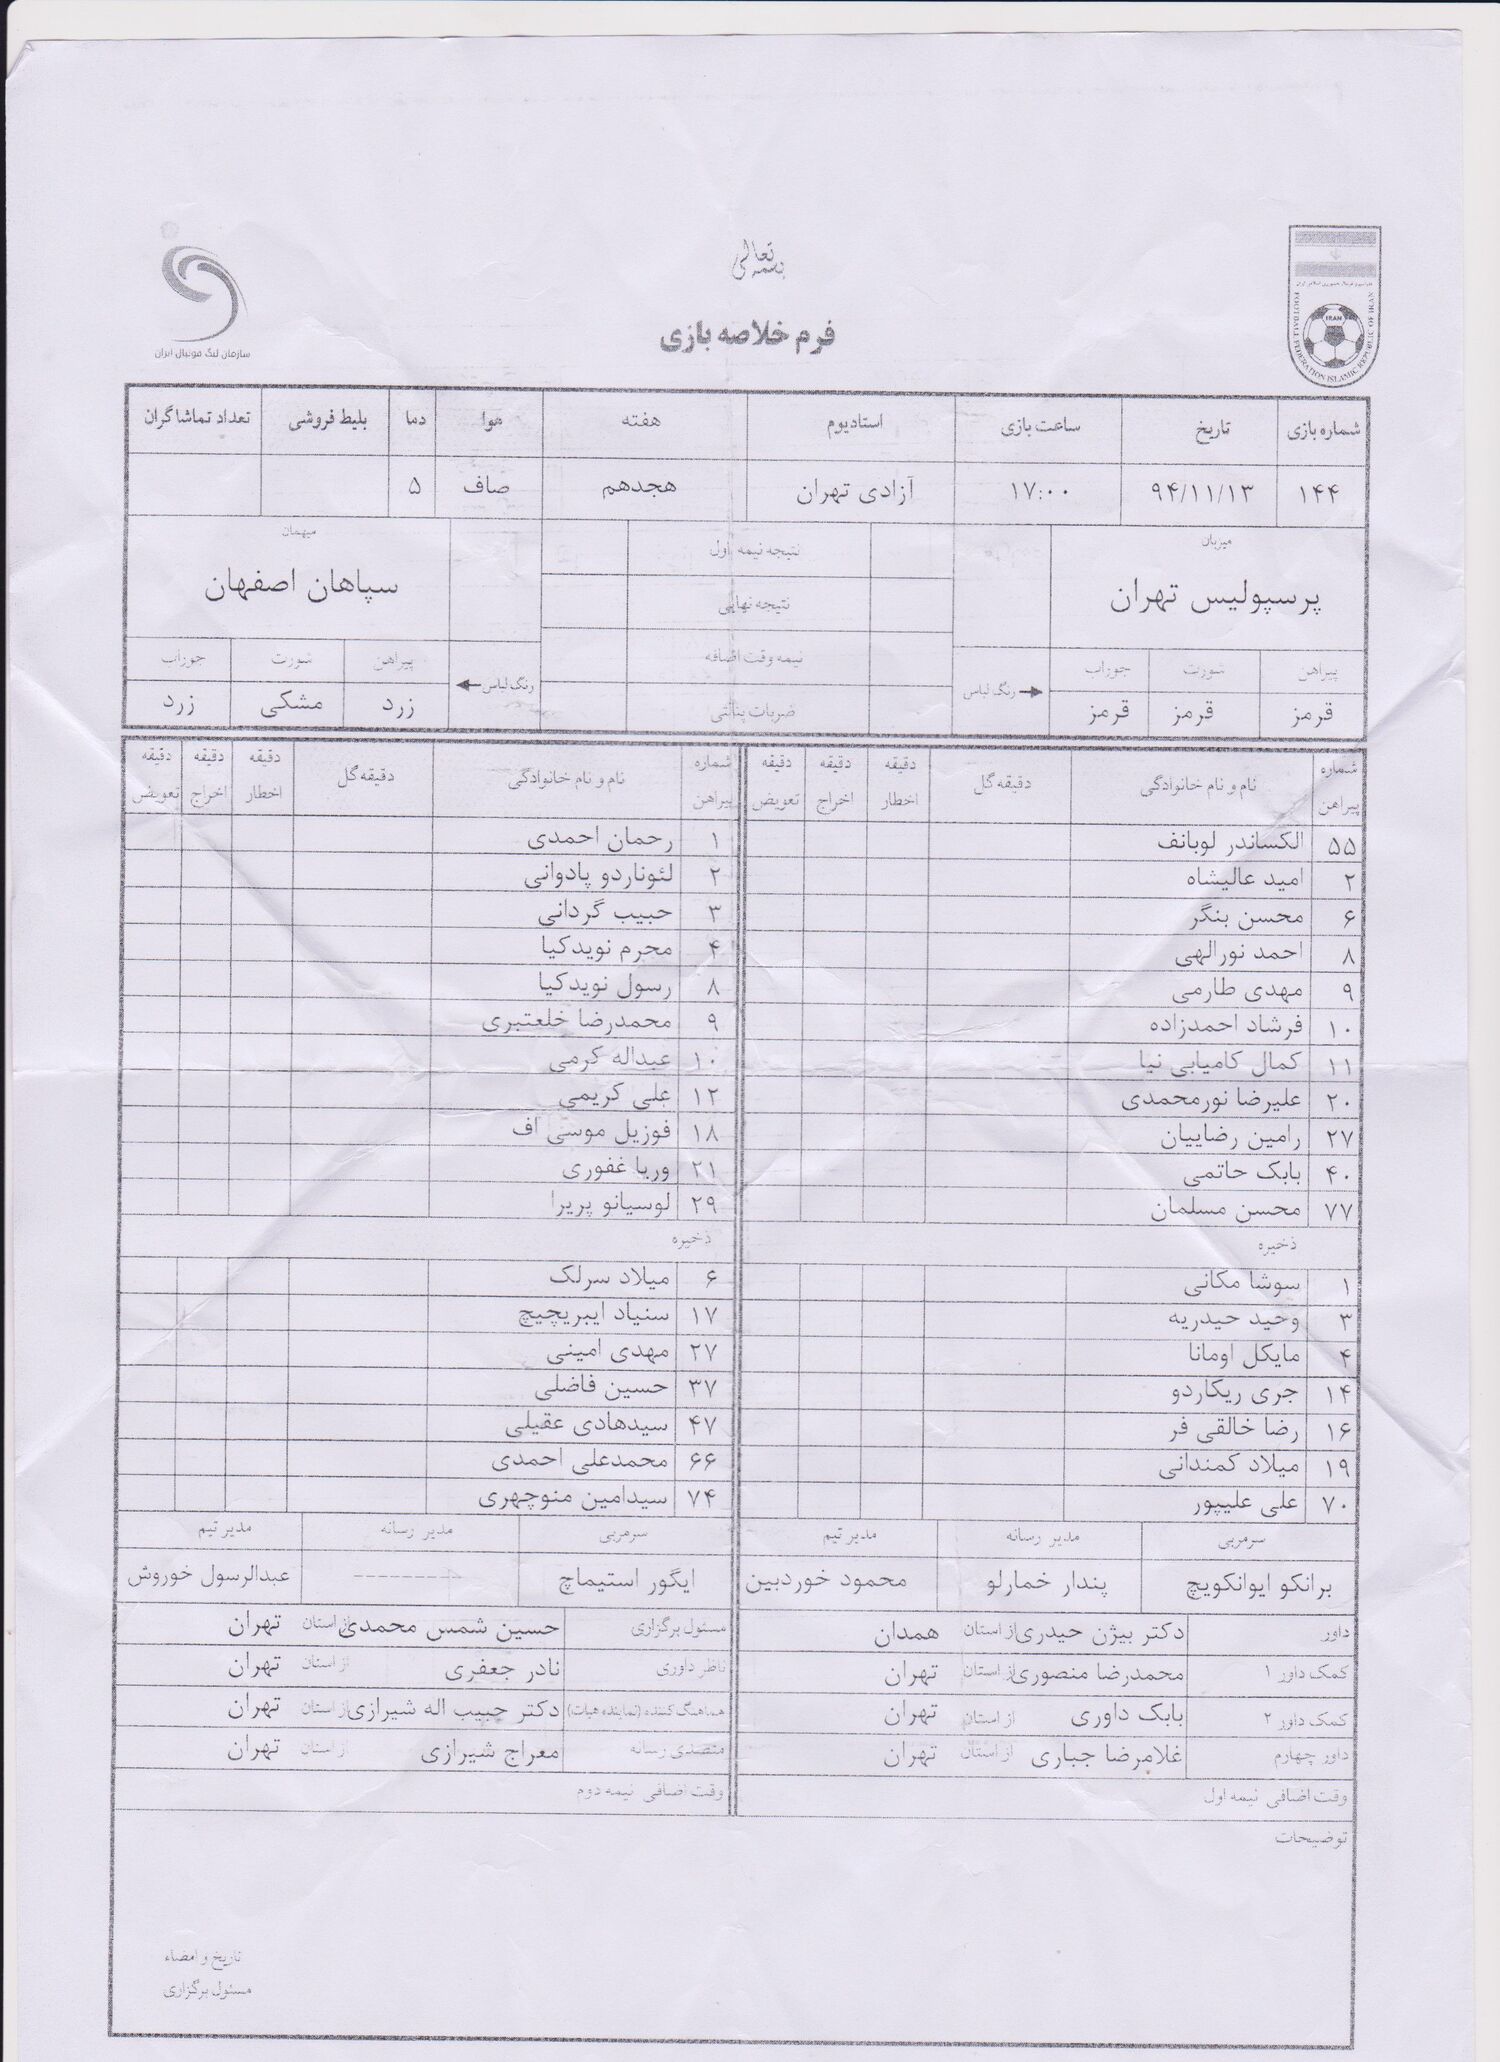 بسمه تعالی
فرم خلاصه بازی
سازمان لیگ فوتبال ایران
FOOTBALL FEDERATION ISLAMIC REPUBLIC OF IRAN
IRAN
شماره بازی تاریخ ساعت بازی استادیوم هفته هوا دما بلیط فروشی تعداد تماشاگران
۱۴۴ ۹۴/۱۱/۱۳ ۱۷:۰۰ آزادی تهران هجدهم صاف ۵
میزبان نتیجه نیمه اول میهمان
پرسپولیس تهران نتیجه نهایی سپاهان اصفهان
پیراهن شورت جوراب نیمه وقت اضافه پیراهن شورت جوراب
رنگ لباس رنگ لباس
قرمز قرمز قرمز ضربات پنالتی زرد مشکی زرد
شماره پیراهن نام و نام خانوادگی دقیقه گل دقیقه اخطار دقیقه اخراج دقیقه تعویض شماره پیراهن نام و نام خانوادگی دقیقه گل دقیقه اخطار دقیقه اخراج دقیقه تعویض
۵۵ الکساندر لوبانف ۱ رحمان احمدی
۲ امید عالیشاه ۲ لئوناردو پادوانی
۶ محسن بنگر ۳ حبیب گردانی
۸ احمد نورالهی ۴ محرم نویدکیا
۹ مهدی طارمی ۸ رسول نویدکیا
۱۰ فرشاد احمدزاده ۹ محمدرضا خلعتبری
۱۱ کمال کامیابی نیا ۱۰ عبداله کرمی
۲۰ علیرضا نورمحمدی ۱۲ علی کریمی
۲۷ رامین رضاییان ۱۸ فوزیل موسی اف
۴۰ بابک حاتمی ۲۱ وریا غفوری
۷۷ محسن مسلمان ۲۹ لوسیانو پریرا
ذخیره ذخیره
۱ سوشا مکانی ۶ میلاد سرلک
۳ وحید حیدریه ۱۷ سنیاد ایبریچیچ
۴ مایکل اومانا ۲۷ مهدی امینی
۱۴ جری ریکاردو ۳۷ حسین فاضلی
۱۶ رضا خالقی فر ۴۷ سیدهادی عقیلی
۱۹ میلاد کمندانی ۶۶ محمدعلی احمدی
۷۰ علی علیپور ۷۴ سیدامین منوچهری
سرمربی مدیر رسانه مدیر تیم سرمربی مدیر رسانه مدیر تیم
برانکو ایوانکویچ پندار خمارلو محمود خوردبین ایگور استیماچ ---------- عبدالرسول خوروش
داور دکتر بیژن حیدری از استان همدان مسئول برگزاری حسین شمس محمدی از استان تهران
کمک داور ۱ محمدرضا منصوری از استان تهران ناظر داوری نادر جعفری از استان تهران
کمک داور ۲ بابک داوری از استان تهران هماهنگ کننده (نماینده هیات) دکتر حبیب اله شیرازی از استان تهران
داور چهارم غلامرضا جباری از استان تهران متصدی رسانه معراج شیرازی از استان تهران
وقت اضافی نیمه اول وقت اضافی نیمه دوم
توضیحات
تاریخ و امضاء
مسئول برگزاری